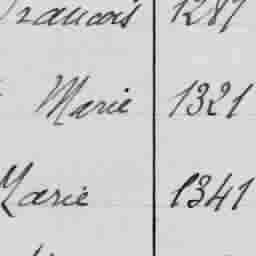 Francois 1287
Marie 1321
Marie 1341